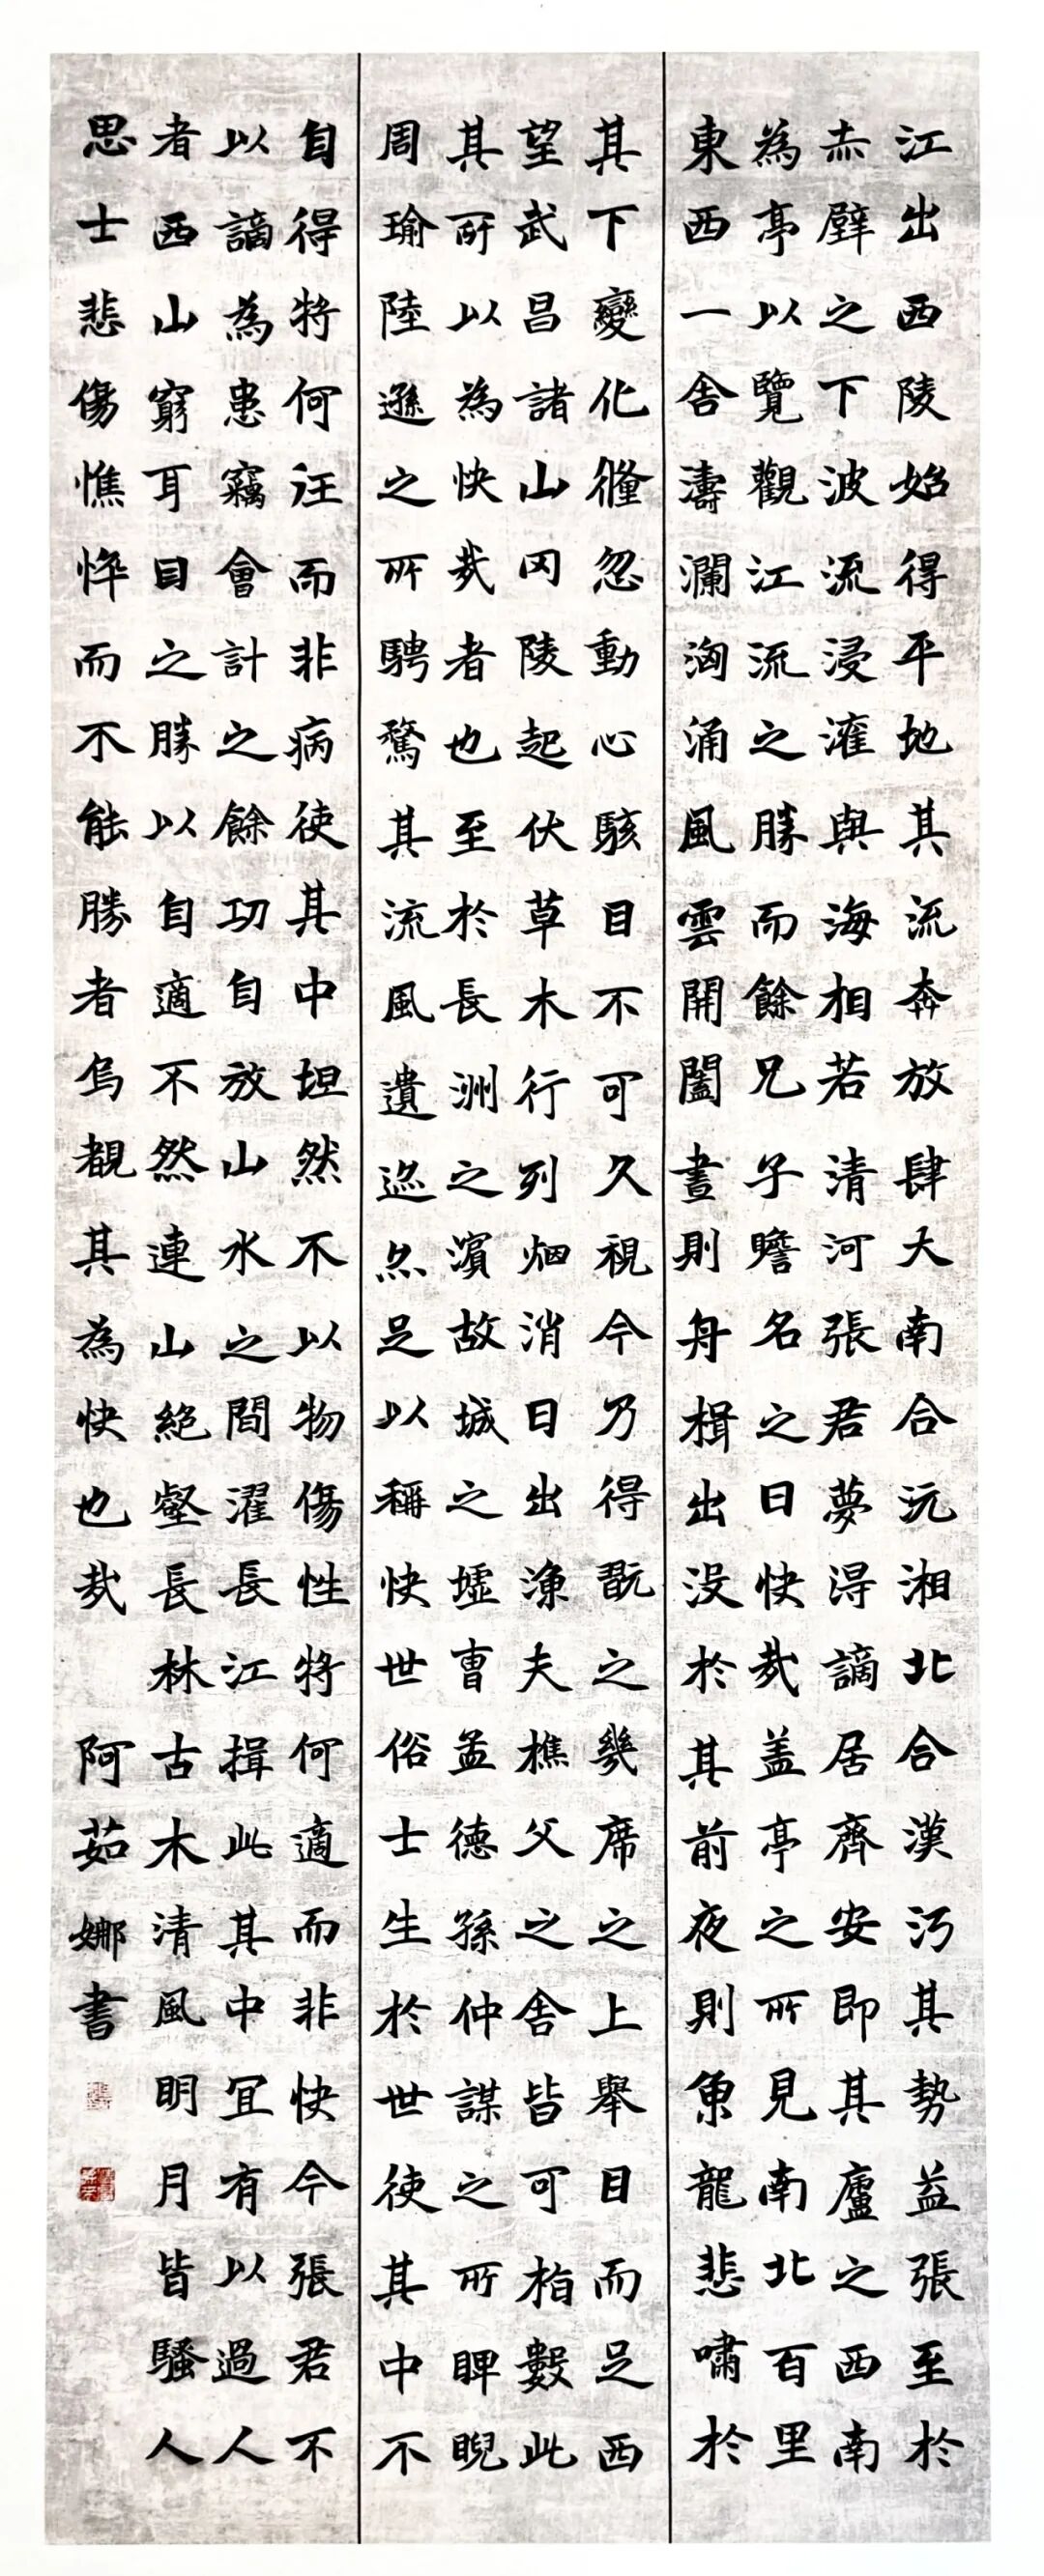 江出西陵始得平地其流奔放肆大南合沅湘北合漢沔其勢益張至於
赤壁之下波流浸灌與海相若清河張君夢得謫居齊安即其廬之西南
為亭以覽觀江流之勝而餘兄子瞻名之曰快哉盖亭之所見南北百里
東西一舍濤瀾洶涌風雲開闔晝則舟楫出没於其前夜則魚龍悲嘯於
其下變化儵忽動心駭目不可久視今乃得翫之幾席之上舉目而足西
望武昌諸山冈陵起伏草木行列烟消日出漁夫樵父之舍皆可指數此
其所以為快哉者也至於長洲之濱故城之墟曹孟德孫仲謀之所睥睨
周瑜陸遜之所騁騖其流風遺迹亦足以稱快世俗士生於世使其中不
自得將何往而非病使其中坦然不以物傷性將何適而非快今張君不
以謫為患竊會計之餘功自放山水之間濯長江揖此其中宜有以過人
者西山窮耳目之勝以自適不然連山絕壑長林古木清風明月皆騷人
思士悲傷憔悴而不能勝者烏覩其為快也哉 阿茹娜書